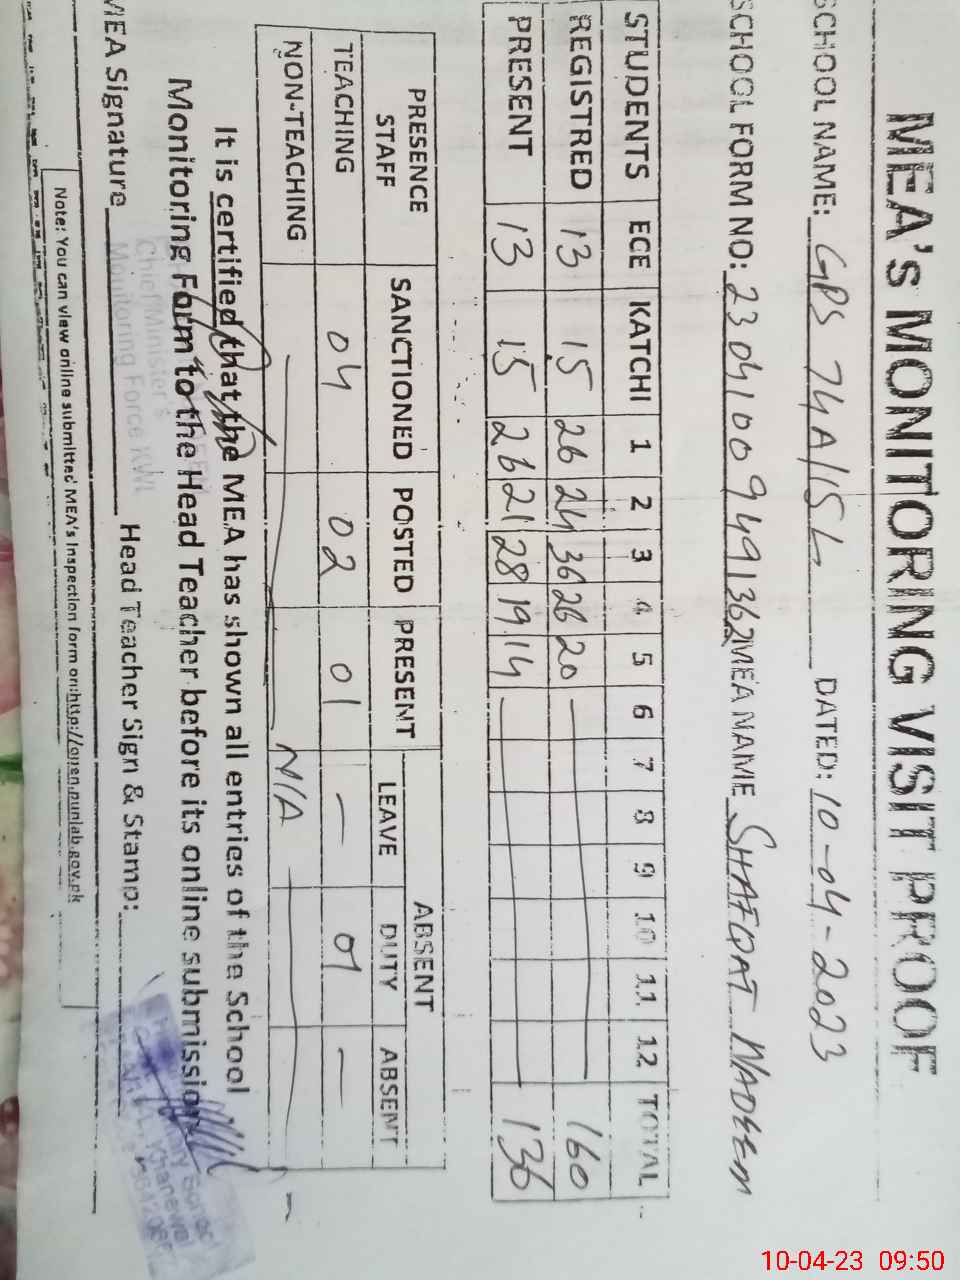 MEA's MONITORING VISIT PROOF
SCHOOL NAME: GPS 74A/15L DATED: 10-04-2023
SCHOOL FORM NO: 23041009491362 MEA NAME SHAFQAT NADEEM
STUDENTS ECE KATCHI 1 2 3 4 5 6 7 8 9 10 11 12 TOTAL
REGISTRED 13 15 26 24 36 26 20 160
PRESENT 13 15 26 21 28 19 14 136
PRESENCE STAFF SANCTIONED POSTED PRESENT ABSENT
LEAVE DUTY ABSENT
TEACHING 04 02 01 — 01 —
NON-TEACHING N/A
It is certified that the MEA has shown all entries of the School
Monitoring Form to the Head Teacher before its online submission
Chief Minister's
Monitoring Force KWL
MEA Signature Head Teacher Sign & Stamp:
Note: You can view online submitted MEA's Inspection form on:http://open.punjab.gov.pk
10-04-23 09:50